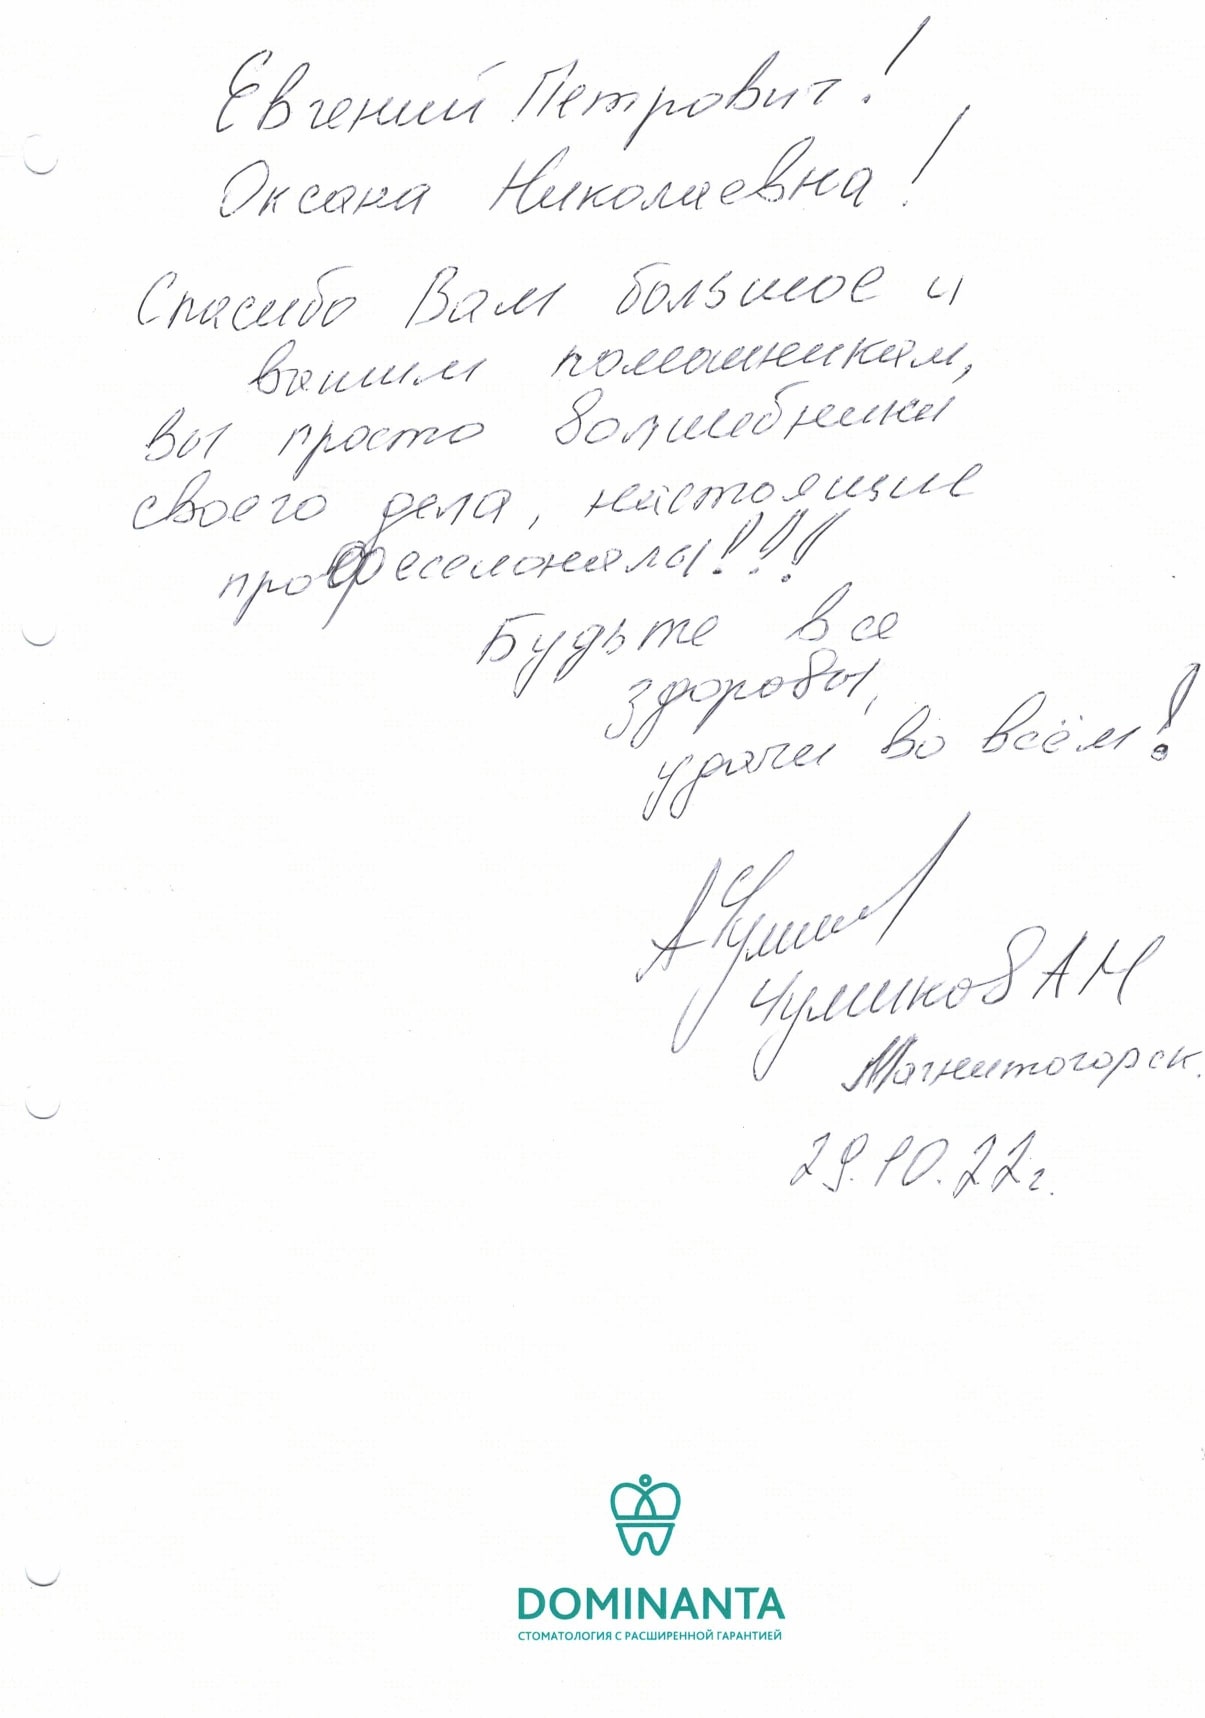 Евгений Петрович!
Оксана Николаевна!
Спасибо Вам большое и
вашим помошникам,
вы просто волшебники
своего дела, настоящие
профессионалы!!!
Будьте все
здоровы,
удачи во всём!
Чуминов А М
Магнитогорск.
29.10.22г.
DOMINANTA
СТОМАТОЛОГИЯ С РАСШИРЕННОЙ ГАРАНТИЕЙ